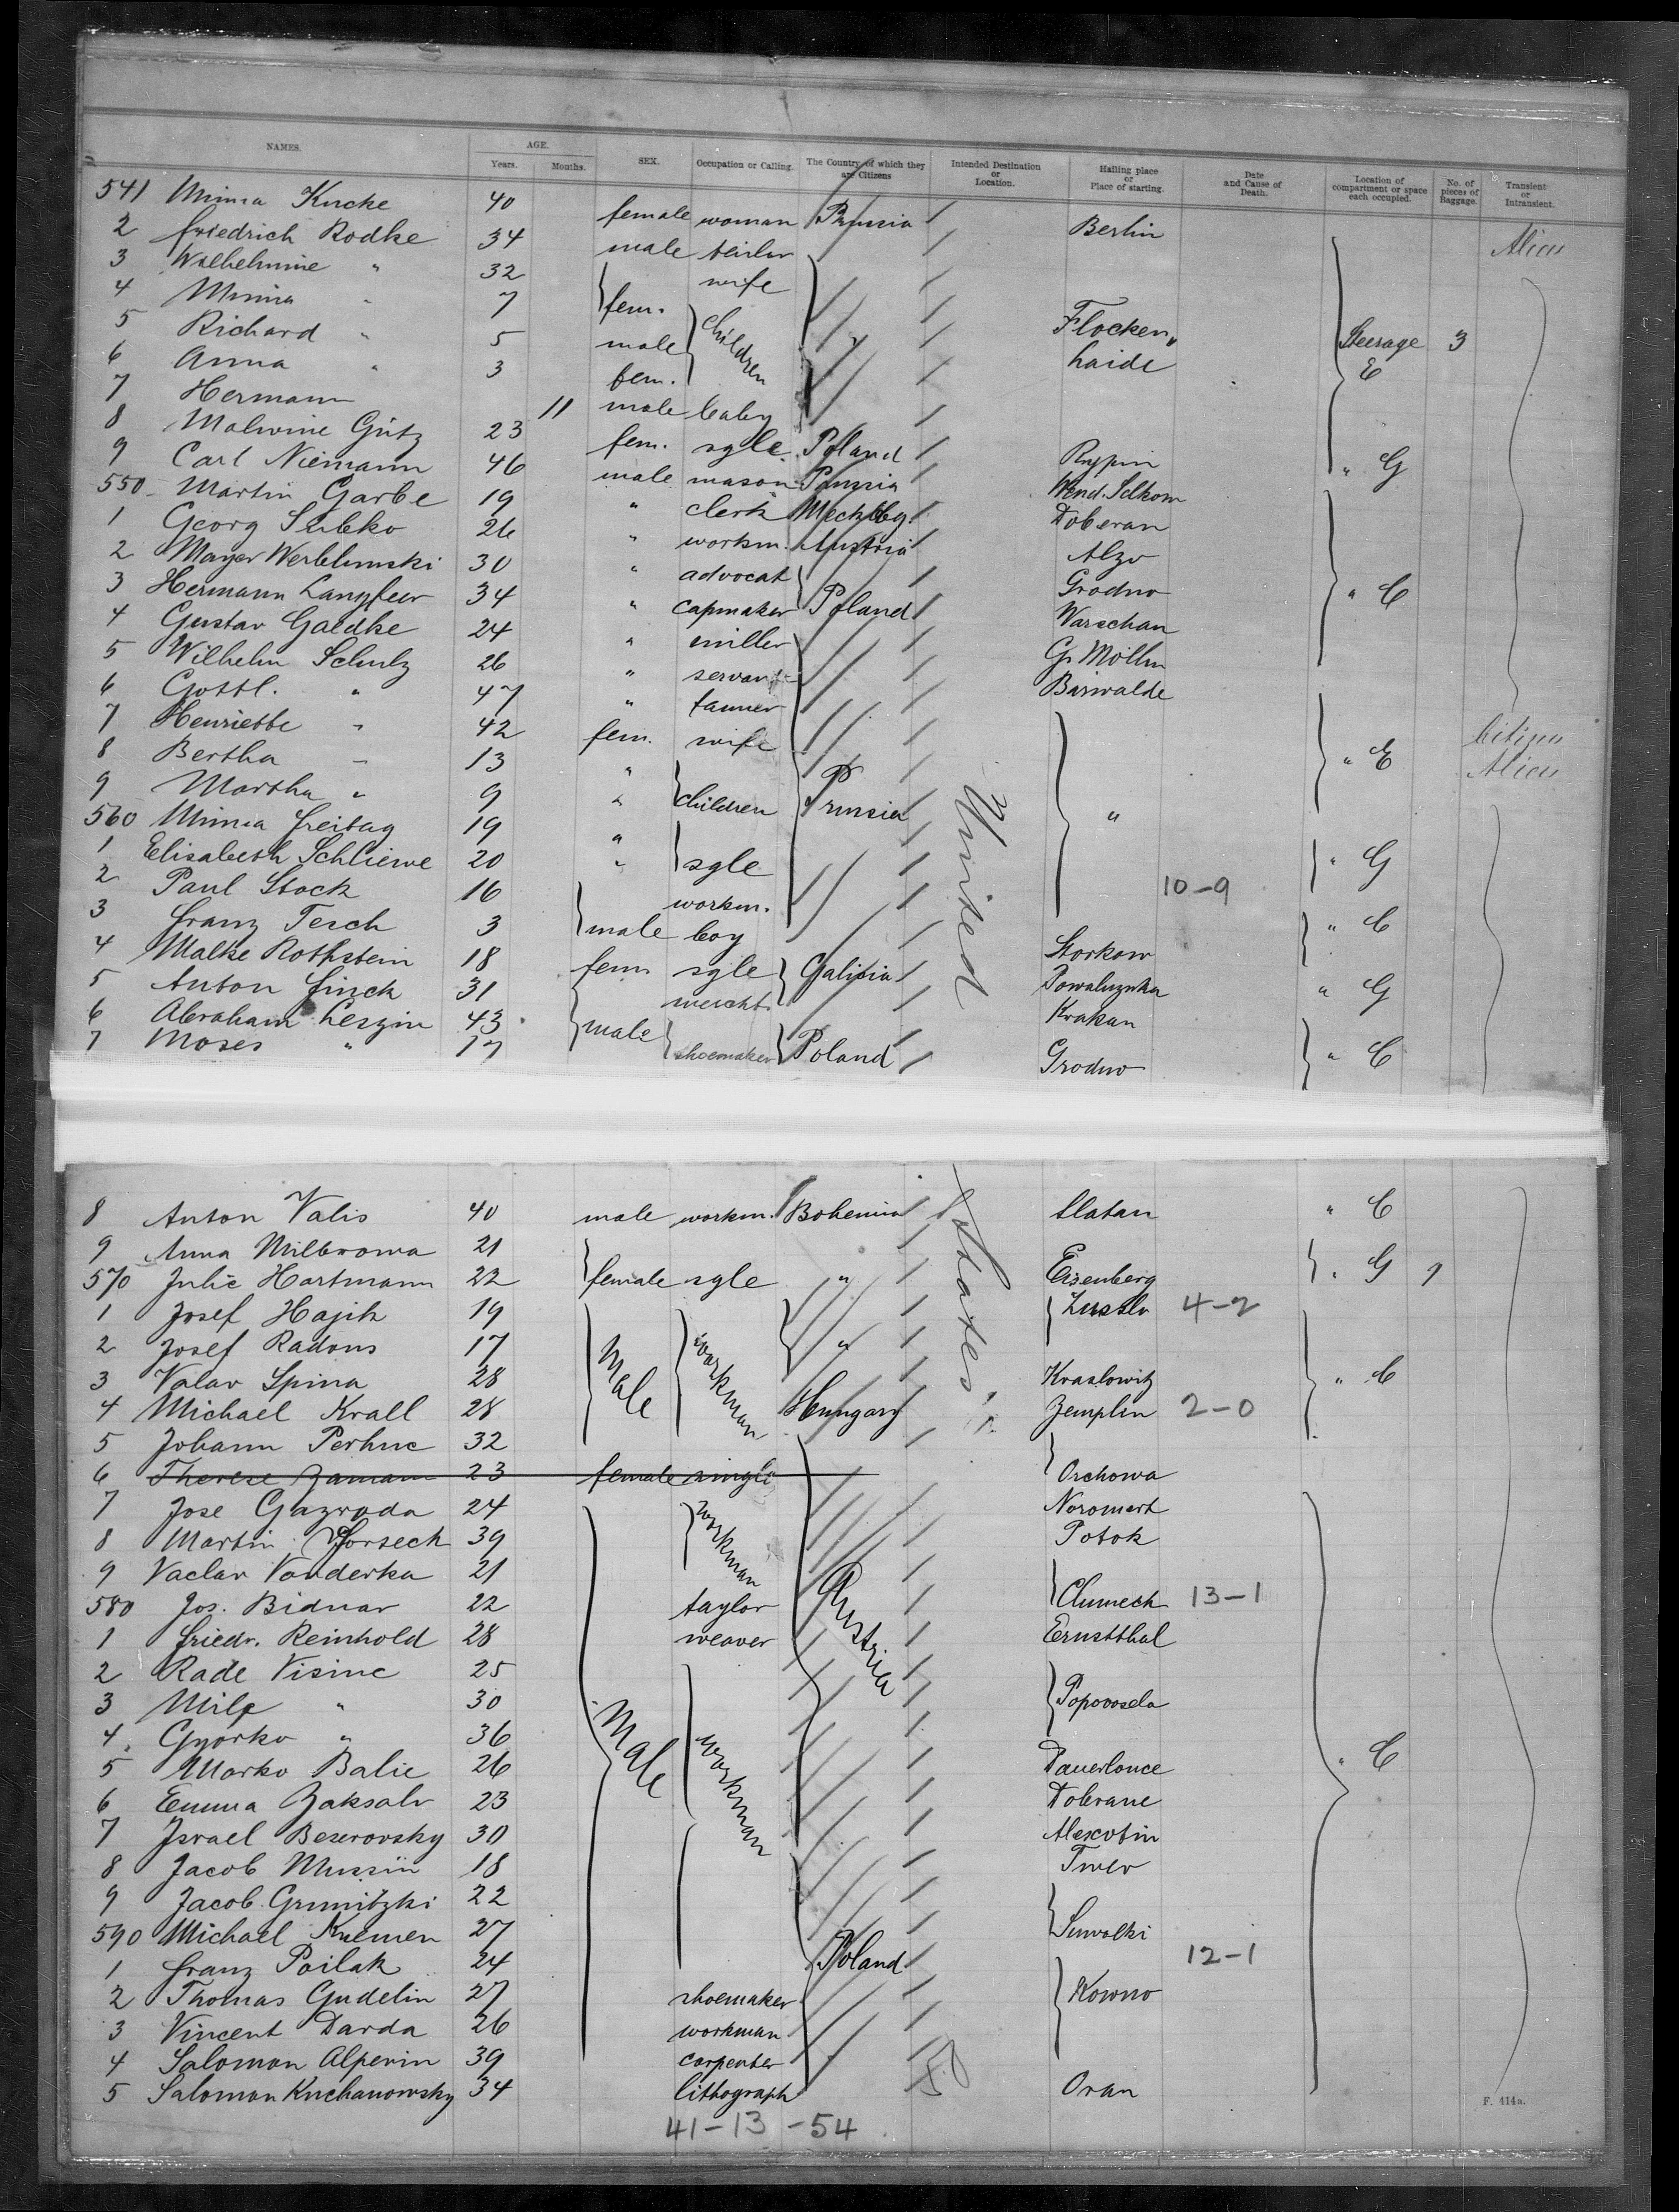 NAMES. AGE. SEX. Occupation or Calling. The Country of which they are Citizens Intended Destination or Location. Hailing place or Place of starting. Date and Cause of Death. Location of compartment or space each occupied. No. of pieces of Baggage. Transient or Intransient.
Years. Months.
541 Minna Kucke 40 female woman Prussia Berlin
2 Friedrich Rodke 34 male tailor Alien
3 Wilhelmine " 32 wife
4 Minna " 7 fem.
5 Richard " 5 male children Flocken" Steerage 3
6 Anna " 3 fem. haide E
7 Hermann 11 male baby
8 Malwine Gütz 23 fem. sgle Poland Rypin " G
9 Carl Niemann 46 male mason Prussia Wend. Silkow
550 Martin Garbe 19 " clerk Mecklbg. Doberan
1 Georg 26 " workm. Austria Alzo
2 Mayer 30 " advocat Grodno
3 Hermann Langfeer 34 " capmaker Poland Warschau " C
4 Gustav Gaedke 24 " miller Gr. Mölln
5 Wilhelm Schulz 26 " servant Bärwalde
6 Gottl. " 47 " tanner
7 Henriette " 42 fem. wife Citizen
8 Bertha " 13 " " E Alien
9 Martha " 9 " children Prussia "
560 Minna Freitag 19 "
1 Elisabeth Schliewe 20 " sgle " G
2 Paul Stock 16 workm. 10-9
3 Franz Tesch 3 male boy Storkow " C
4 Malke Rothstein 18 fem. sgle Galicia " G
5 Anton Finck 31 mercht. Krakau
6 Abraham Leszin 43 male
7 Moses " 17 shoemaker Poland Grodno " C
United
8 Anton Valis 40 male workm. Bohemia Slatan " C
9 Anna Milbrowa 21
570 Julie Hartmann 22 female sgle " Eisenberg " G 1
1 Josef Hajik 19 4-2
2 Josef Radous 17 "
3 Valav Spina 28 Male workman Kraslowitz " C
4 Michael Krall 28 Hungary Zemplin 2-0
5 Johann Perhuc 32
6 Therese Zamann 23 female single Orchowa
7 Jose Gazvoda 24 Noromert
8 Martin 39 workman Potok
9 Vaclav Vonderka 21
580 Jos. Bidnar 22 taylor Clumech 13-1
1 Friedr. Reinhold 28 weaver Austria Ernstthal
2 Rade Visinc 25
3 Mile " 30 Popovosela
4 Gyorko " 36
5 Marko Balic 26 Male workman " C
6 Emma Zaksalv 23 Dobrane
7 Israel Beserovsky 30 Alexotin
8 Jacob Mussin 18 Twer
9 Jacob Grunitzki 22
590 Michael 27 Suwalki
1 Franz Poilak 24 Poland 12-1
2 Thomas Gudelin 27 shoemaker Kowno
3 Vincent Darda 26 workman
4 Salomon Alperin 39 carpenter
5 Salomon Kuchanowsky 34 lithograph Oran
States.
F. 414a.
41-13-54